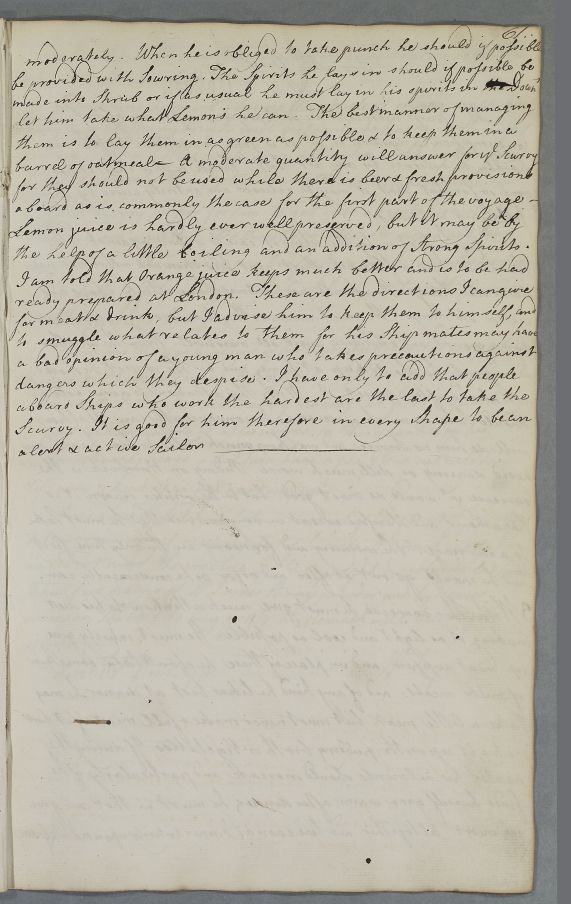 6
moderately. When he is obliged to take punch he should if possible
be provided with Sowring. The Spirits he lays in should if possible be
made into Shrub or if as usual he must lay in his spirits in the Down
let him take what Lemons he can. The best manner of managing
them is to lay them in as green as possible & to keep them in a
barrel of oatmeal. A moderate quantity will answer for ye Scurvy
for they should not be used while there is beer & fresh provisions
aboard as is commonly the case for the first part of the voyage –
Lemon juice is hardly ever well preserved, but it may be by
the help of a little boiling and an addition of Strong Spirits.
I am told that Orange juice keeps much better and is to be had
ready prepared at London. These are the directions I can give
for meat & drink, but I advise him to keep them to himself, and
to smuggle what relates to them for his Shipmates may have
a bad opinion of a young man who takes precautions against
dangers which they despise. I have only to add that people
aboard Ships who work the hardest are the last to take the
Scurvy. It is good for him therefore in every Shape to be an
alert & active Sailor